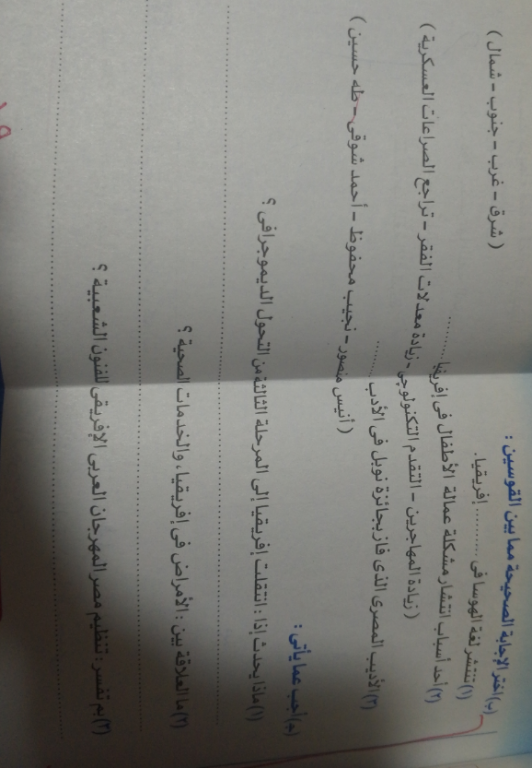 (ب) اختر الإجابة الصحيحة مما بين القوسين :
(١) تنتشر لغة الهوسا فى .......... إفريقيا. ( شرق - غرب - جنوب - شمال )
(٢) أحد أسباب انتشار مشكلة عمالة الأطفال فى إفريقيا ..........
( زيادة المهاجرين - التقدم التكنولوجى - زيادة معدلات الفقر - تراجع الصراعات العسكرية )
(٣) الأديب المصرى الذى فاز بجائزة نوبل فى الأدب ..........
( أنيس منصور - نجيب محفوظ - أحمد شوقى - طه حسين )
(جـ) أجب عما يأتى :
(١) ماذا يحدث إذا : انتقلت إفريقيا إلى المرحلة الثالثة من التحول الديموجرافى ؟
(٢) ما العلاقة بين : الأمراض فى إفريقيا، والخدمات الصحية ؟
(٣) بم تفسر : تنظيم مصر المهرجان العربى الإفريقى للفنون الشعبية ؟